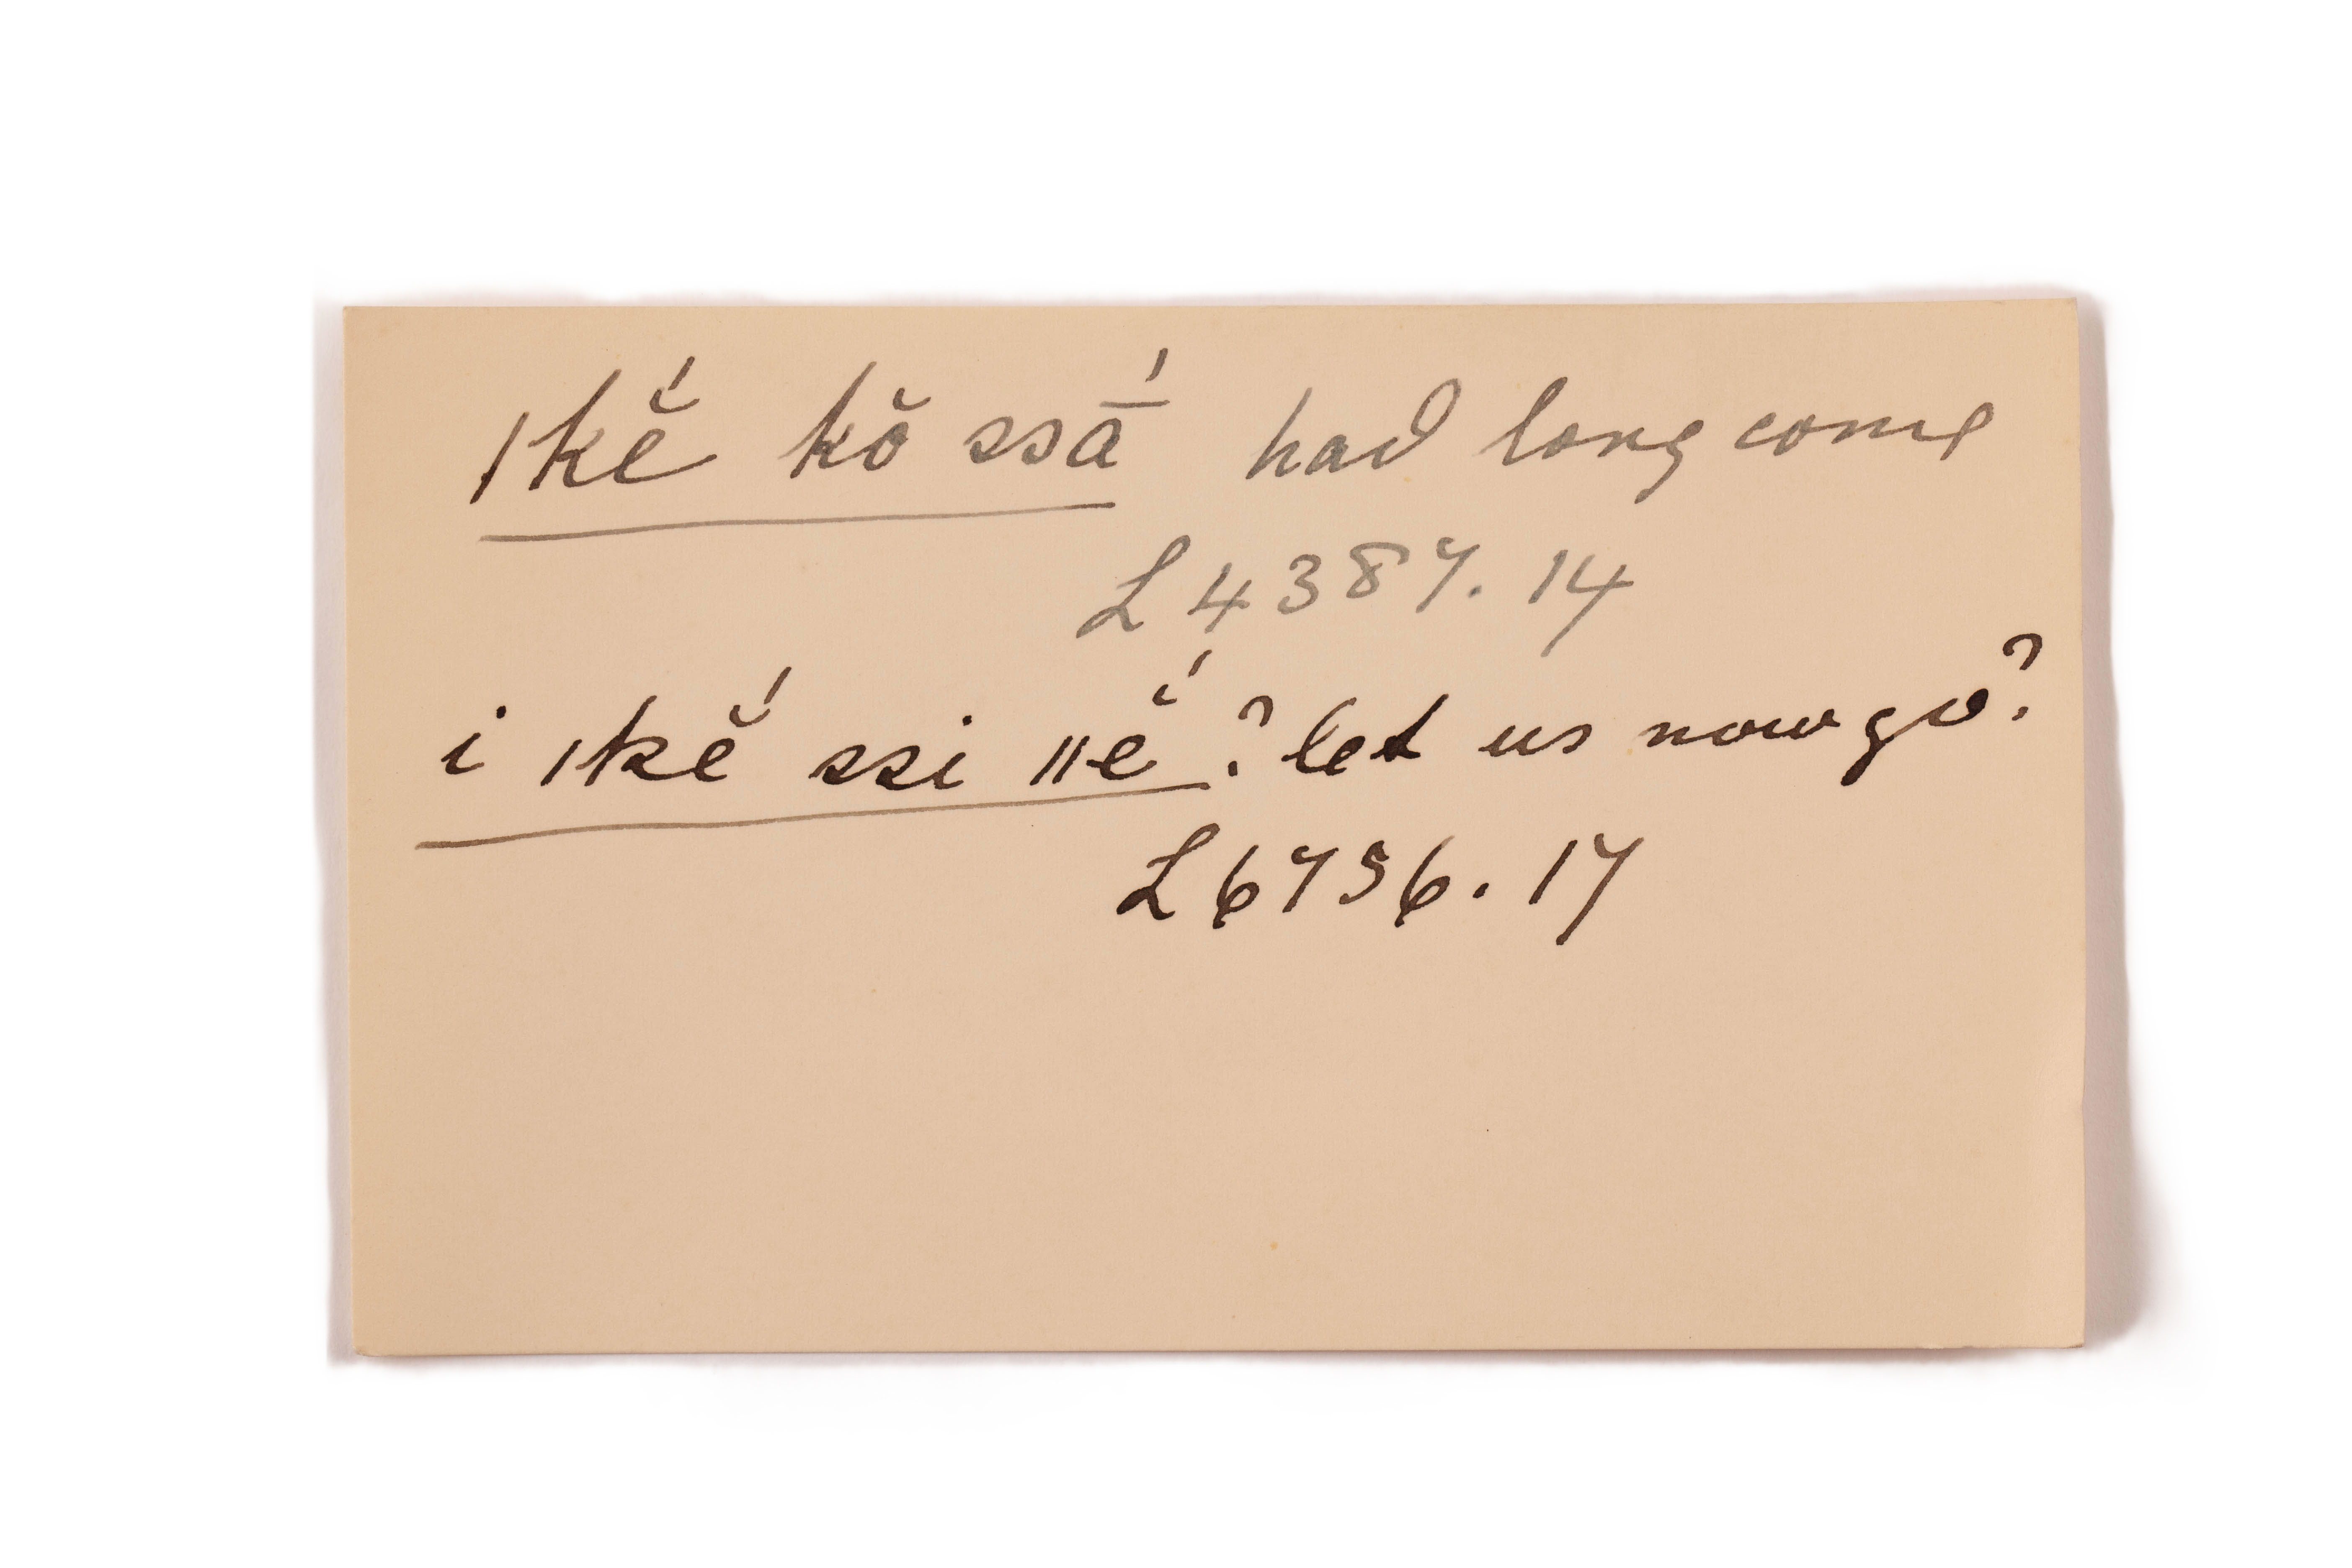 ǀkĕ́ kŏ ssā́ had long come
L 4387. 14
i ǀkĕ́ ssi ǁĕ́? let us now go?
L 6756. 17